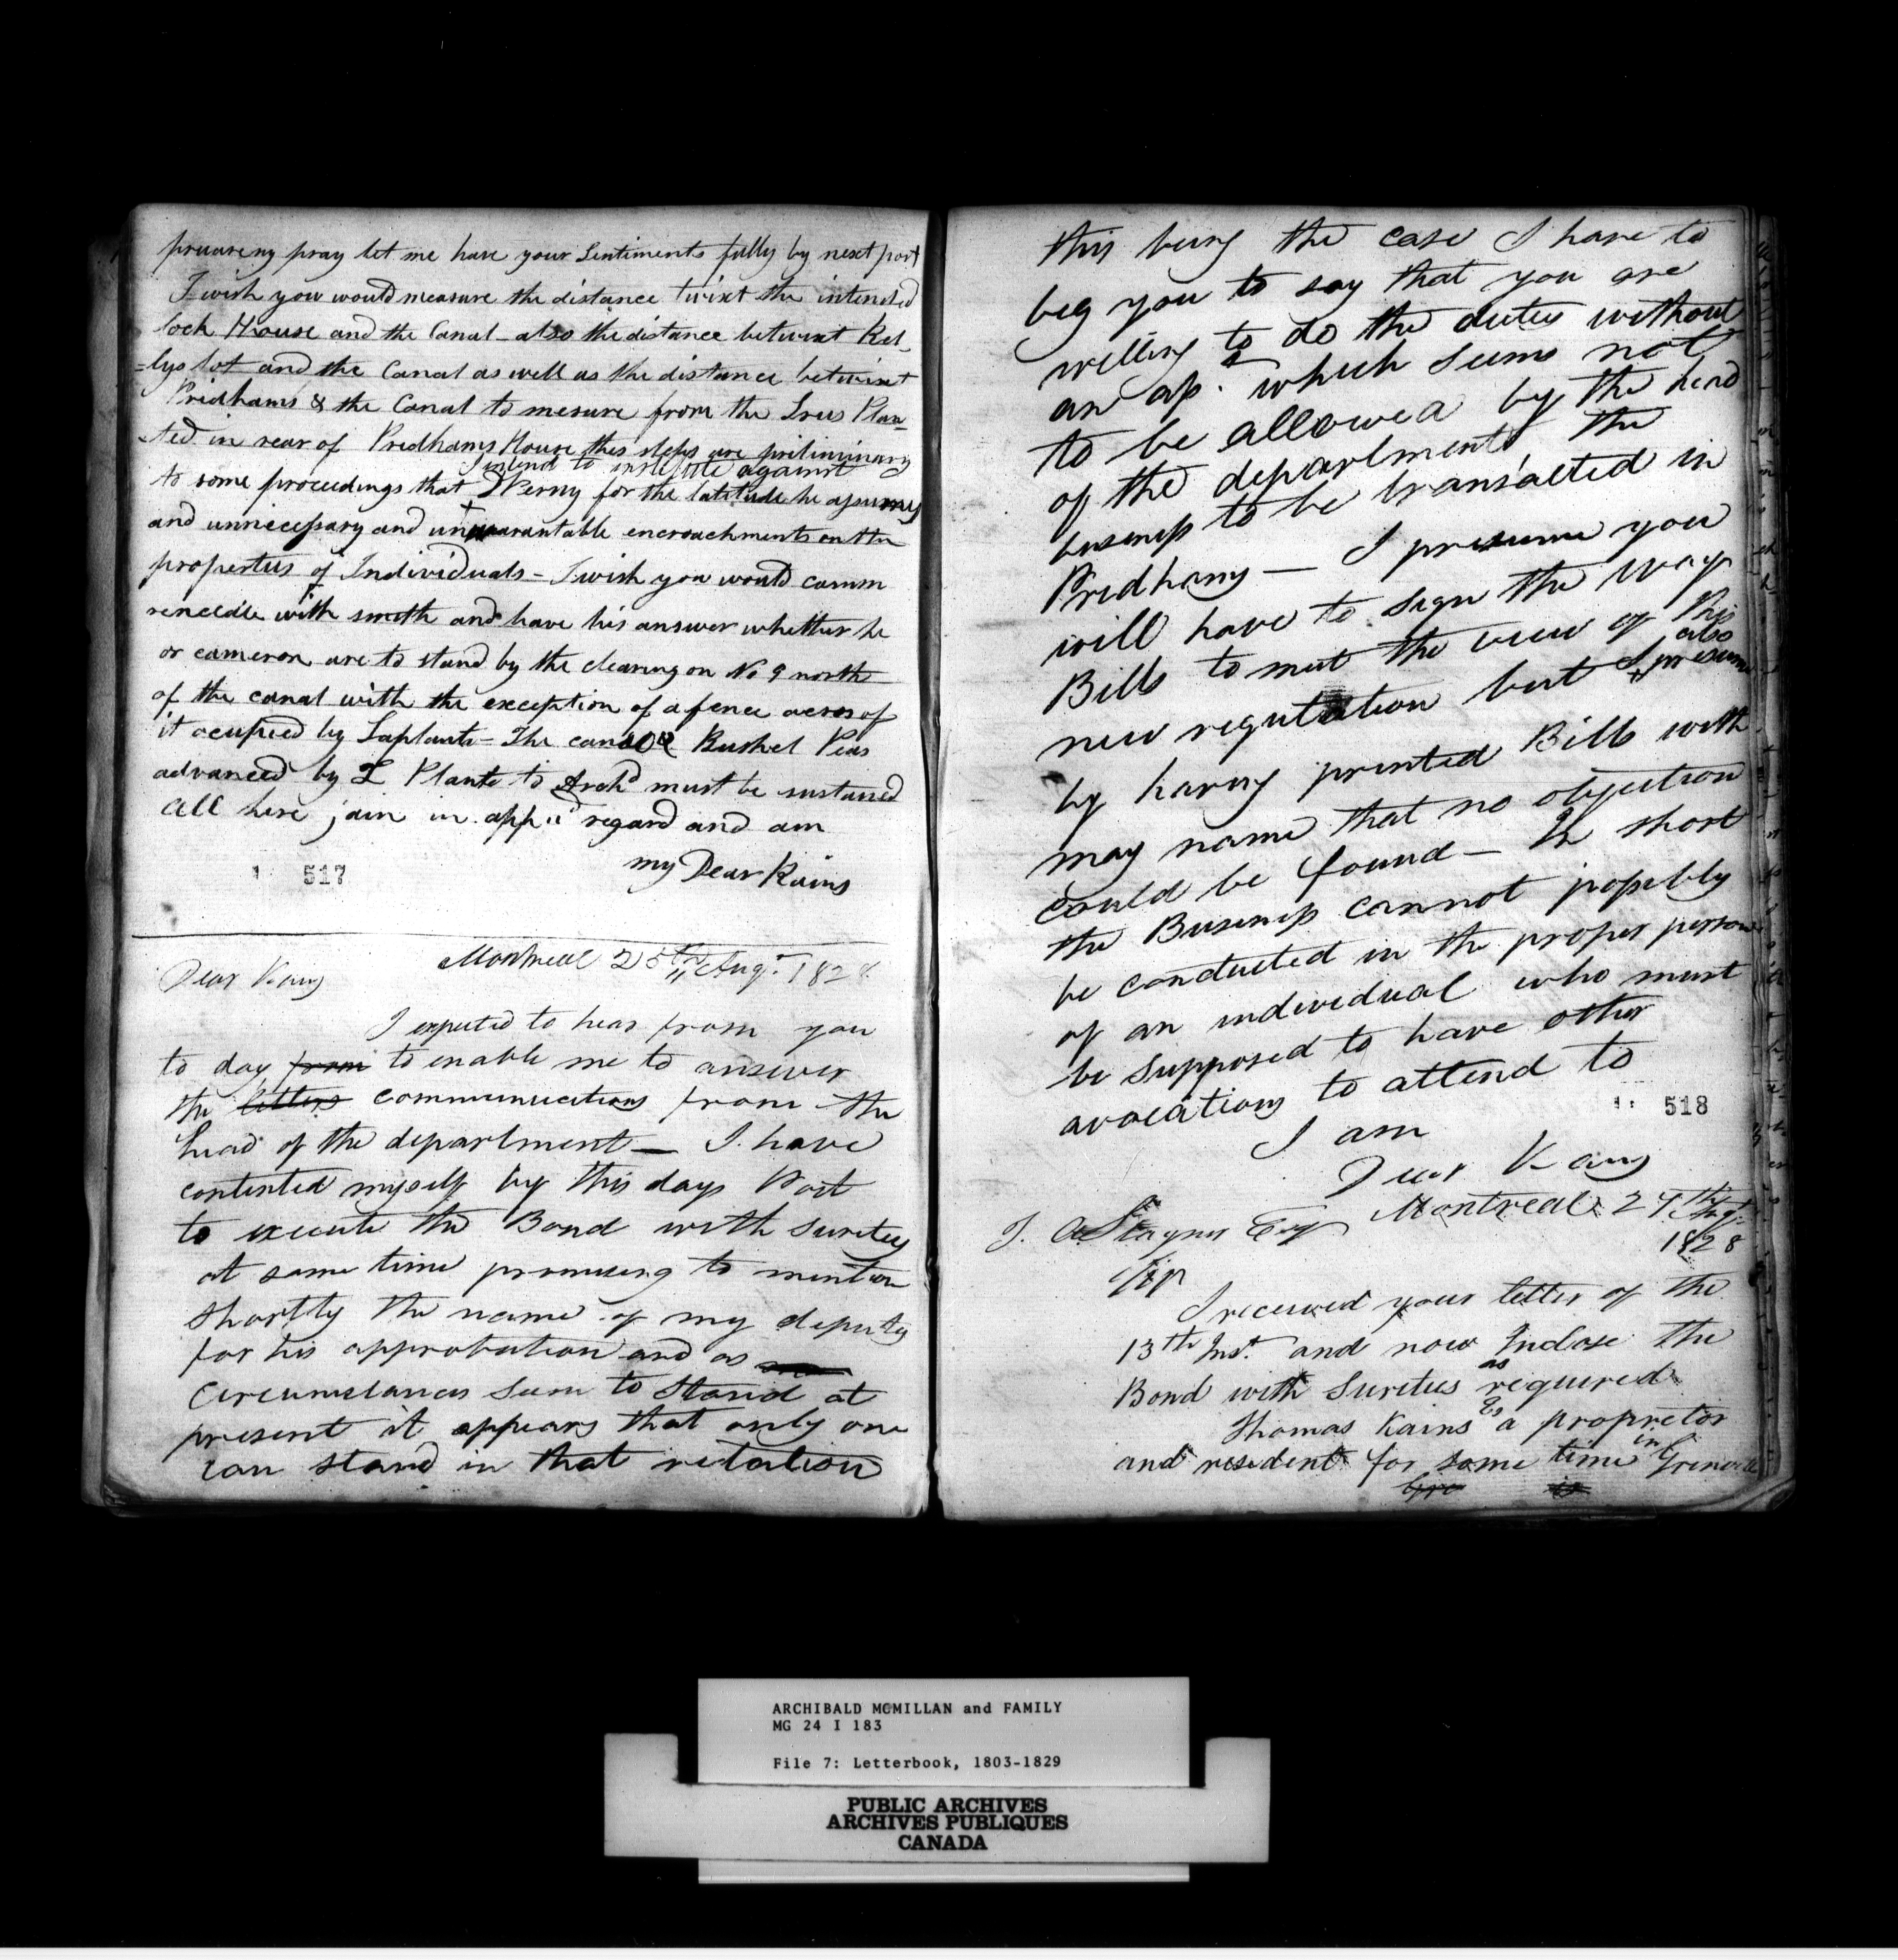 pray let me have your Sentiments fully by next post
I wish you would measure the distance twixt the intended
lock House and the Canal - also the distance betwixt Kel,
=lys lot and the Canal as well as the distance betwixt
Pridhams & the Canal to mesure from the Trees Plan=
=ted in rear of Pridhams House thes steps are priliminary
I intend to institute against
to some proceedings that DPerry for the latitude he assumes
and unnecessary and unwarantable encroachments on the
properties of Individuals - I wish you would comm
with smith and have his answer whether he
or cameron are to stand by the clearing on No 9 north
of the canal with the exception of a fence acros of
it ocupied by Laplante - The Bushel Peas
advanced by L Plante to Archd must be sustained
all here join in regard and am
my Dear Kains
517
Montreal 25th Augt 1828
Dear Kains
I expected to hear from you
to day from to enable me to answer
the letters communications from the
head of the department — I have
contented myself by this days Post
to execute the Bond with Suretys
at same time promising to mention
shortly the name of my deputy
for his approbation and as
Circumstances seem to stand at
present it appears that only one
can stand in that relation
this being the case I have to
beg you to say that you are
willing to do the duties without
an as. which seems not
to be allowed by the head
of the department, the
business to be transacted in
Pridhams — I presume you
will have to sign the way
Bills to meet the view of this
also
new regulation but I presume
by having printed Bills with
may name that no objection
could be found — In short
the Business cannot possibly
be conducted in the proper person
of an individual who must
be supposed to have other
avocations to attend to
518
I am
Dear Kains
Montreal 27th Augt
1828
T. A Stayner Esqr
Sir
I received your letter of the
13th Inst. and now Inclose the
as
Bond with Suretees required
Thomas Kains as a propretor
in
and resident for some time Grenville
ARCHIBALD MCMILLAN and FAMILY
MG 24 I 183
File 7: Letterbook, 1803-1829
PUBLIC ARCHIVES
ARCHIVES PUBLIQUES
CANADA